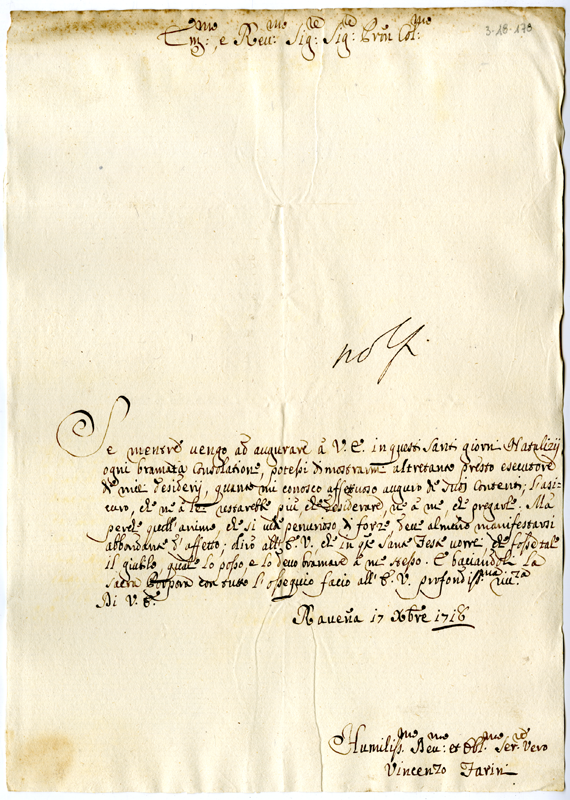 3-18-178
Em:mo e Reu:mo Sig:re Sig:re Prōn Col:mo
Se mentre vengo ad augurare à V. E. in questi santi giorni Natalizij
ogni bramata Consolatione, potessi dimostrarmi altretanto presto esecutore
de miei desiderij, quanto mi conosco affettuoso auguro de suoi Contenti; l'assi-
curo, che ne à lei restarebbe più che desiderare, ne à me, che pregarle. Mà
perche quell'animo, che si vede penurioso di forze, deve almeno manifestarsi
abbondante d'affetto; dirò all'E. V. che in q.te sante Feste vorrei, che fosse tale
il giubilo, quale lo posso, e lo devo bramare à me stesso. E baciandole la
Sacra Porpora con tutto l'ossequio facio all'E. V. profondiss.ma riu.za
Di V. E.
Raveña 17 Xbre 1718
Humiliss.mo Deu:mo et Obl.mo Ser.re Vero
Vincenzo Farini